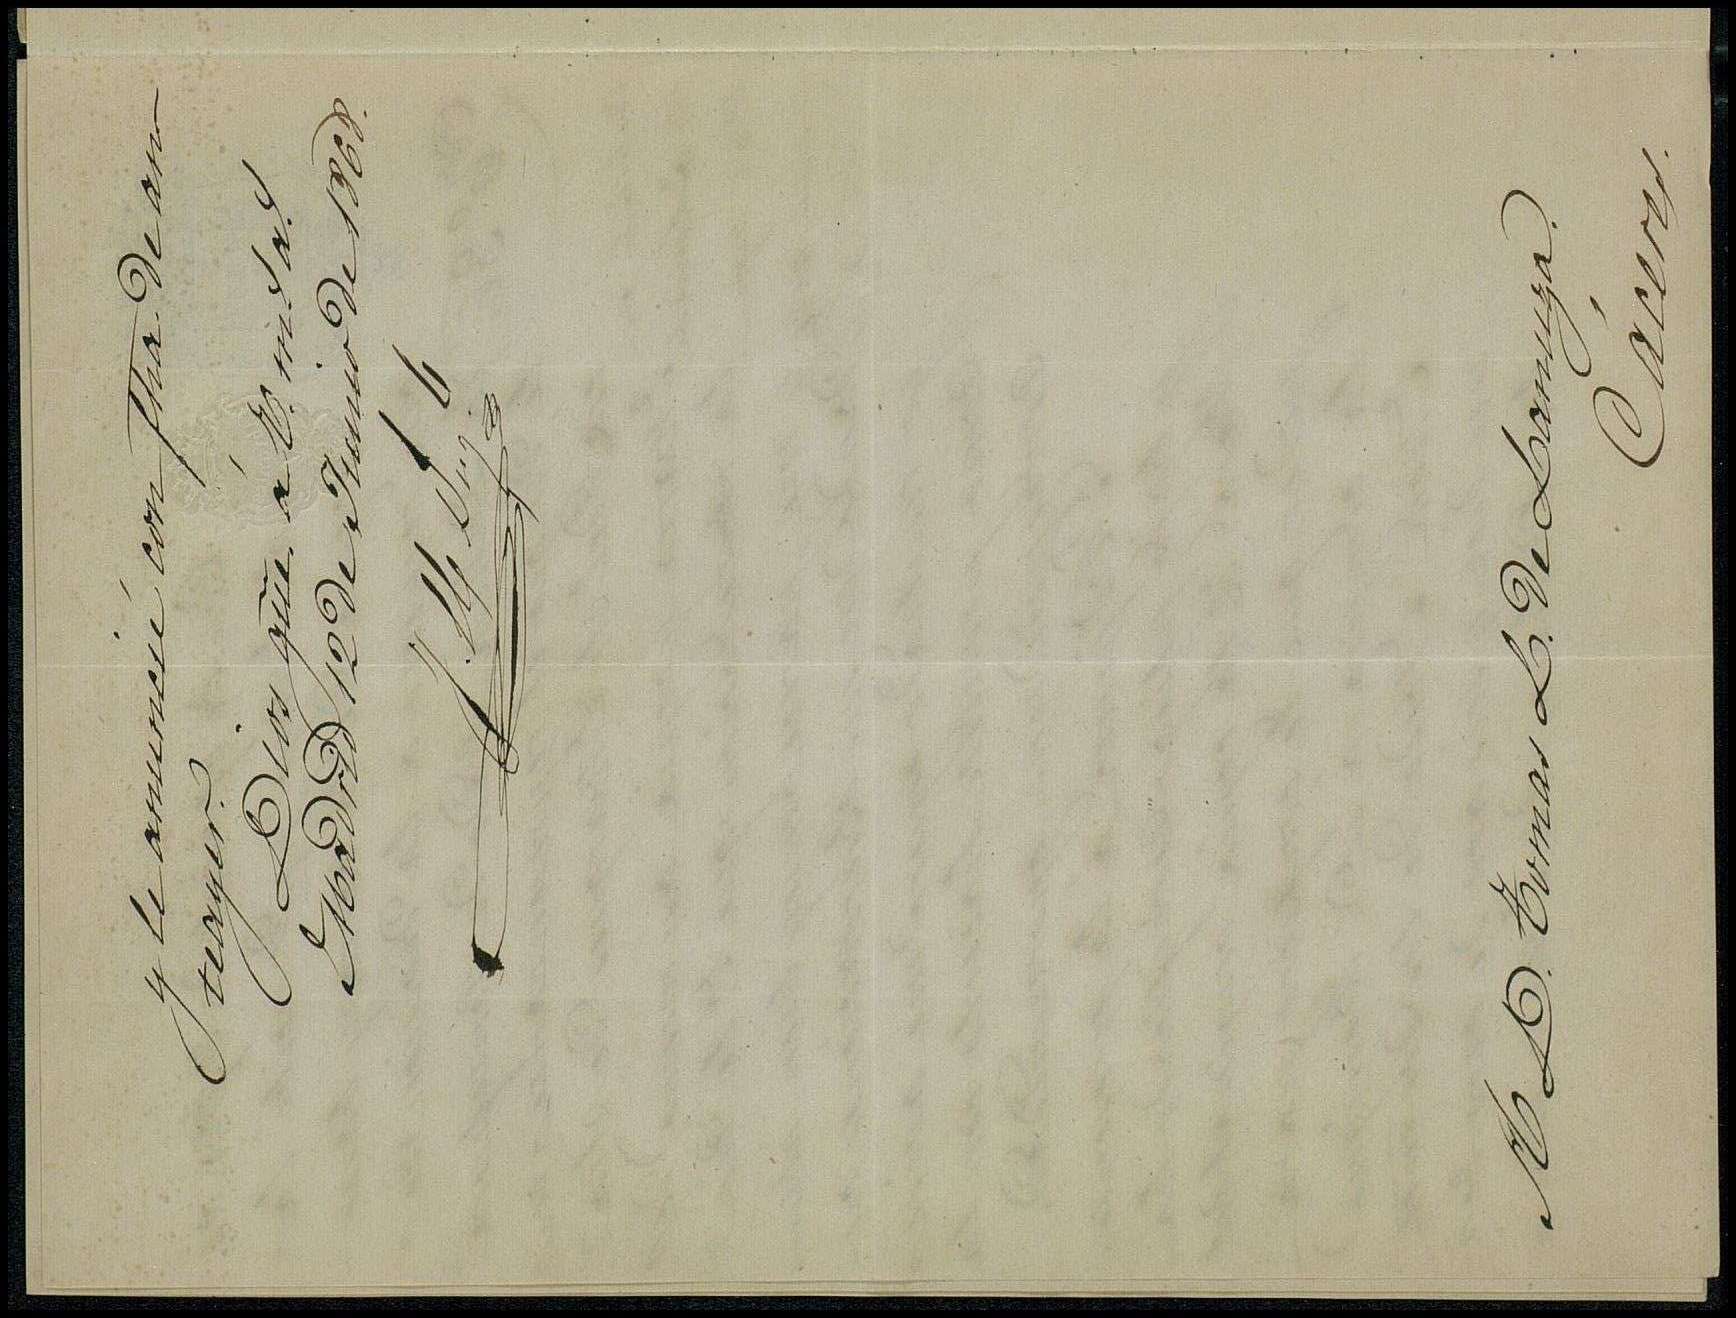 y le anuncié con fha. de an
teayer.
Dios gue. á V. m.s a.s
Madrid 12 de Junio de 1868.
Sr. D. Tomas L. de Lamuza.
Cáceres.